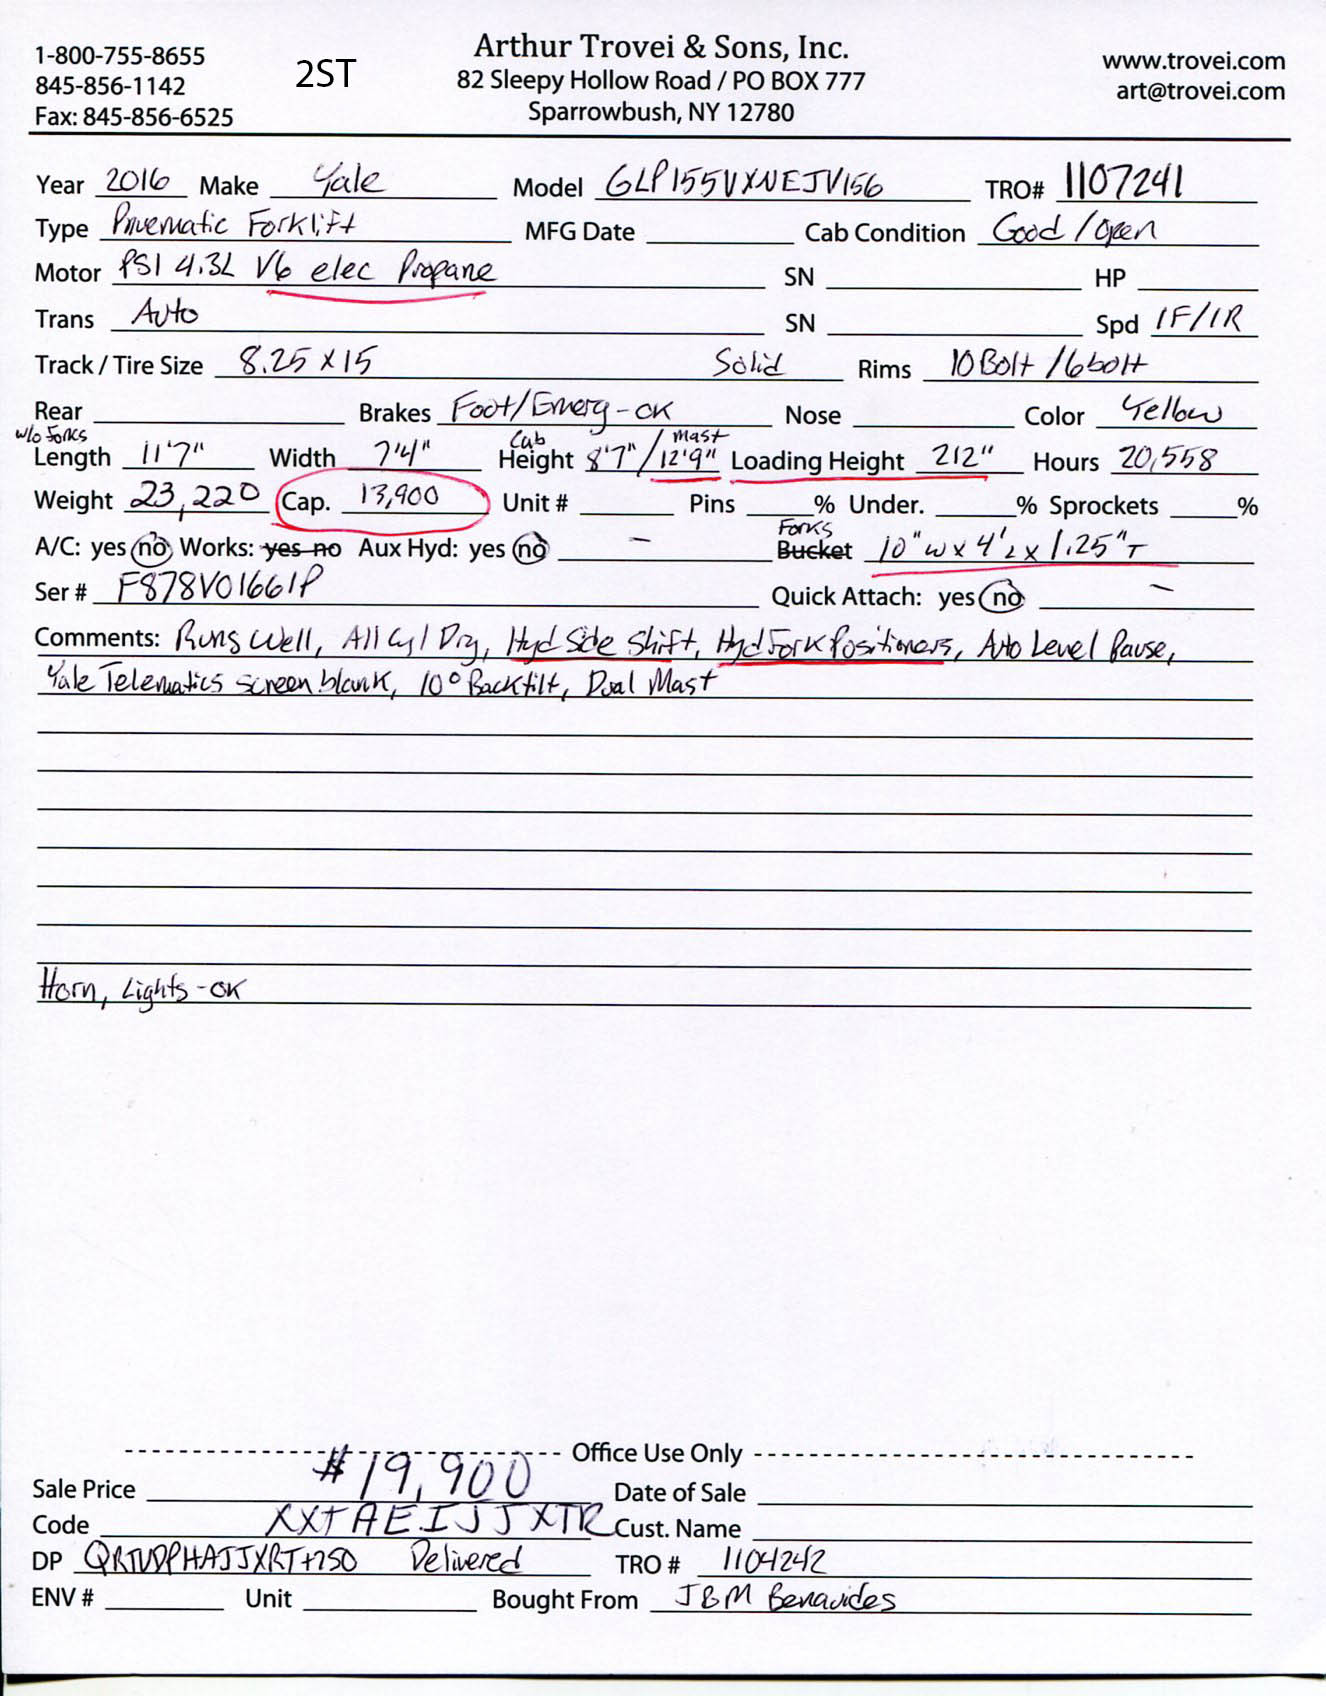 1-800-755-8655
845-856-1142
Fax: 845-856-6525
2ST
Arthur Trovei & Sons, Inc.
82 Sleepy Hollow Road / PO BOX 777
Sparrowbush, NY 12780
www.trovei.com
art@trovei.com
Year 2016 Make Yale Model GLP155VXNEJV156 TRO# 1107241
Type Pnuematic Forklift MFG Date Cab Condition Good / open
Motor PSI 4.3L V6 elec Propane SN HP
Trans Auto SN Spd 1F/1R
Track / Tire Size 8.25 x 15 Solid Rims 10 Bolt / 6 bolt
Rear Brakes Foot/Emerg - OK Nose Color Yellow
w/o Forks Length 11'7" Width 7'4" Cab Height 8'7" / Mast 12'9" Loading Height 212" Hours 20,558
Weight 23,220 Cap. 13,900 Unit # Pins % Under. % Sprockets %
A/C: yes no Works: yes no Aux Hyd: yes no - Forks Bucket 10" W x 4' L x 1.25" T
Ser # F878V01661P Quick Attach: yes no -
Comments: Runs Well, All Cyl Dry, Hyd Side Shift, Hyd Fork Positioners, Auto Level Pause,
Yale Telematics screen blank, 10° Backtilt, Dual Mast
Horn, Lights - OK
Office Use Only
Sale Price $19,900 Date of Sale
Code XXTAEIJJXTR Cust. Name
DP QRTVDPHAJJXRT+750 Delivered TRO # 1104242
ENV # Unit Bought From JBM Benavides